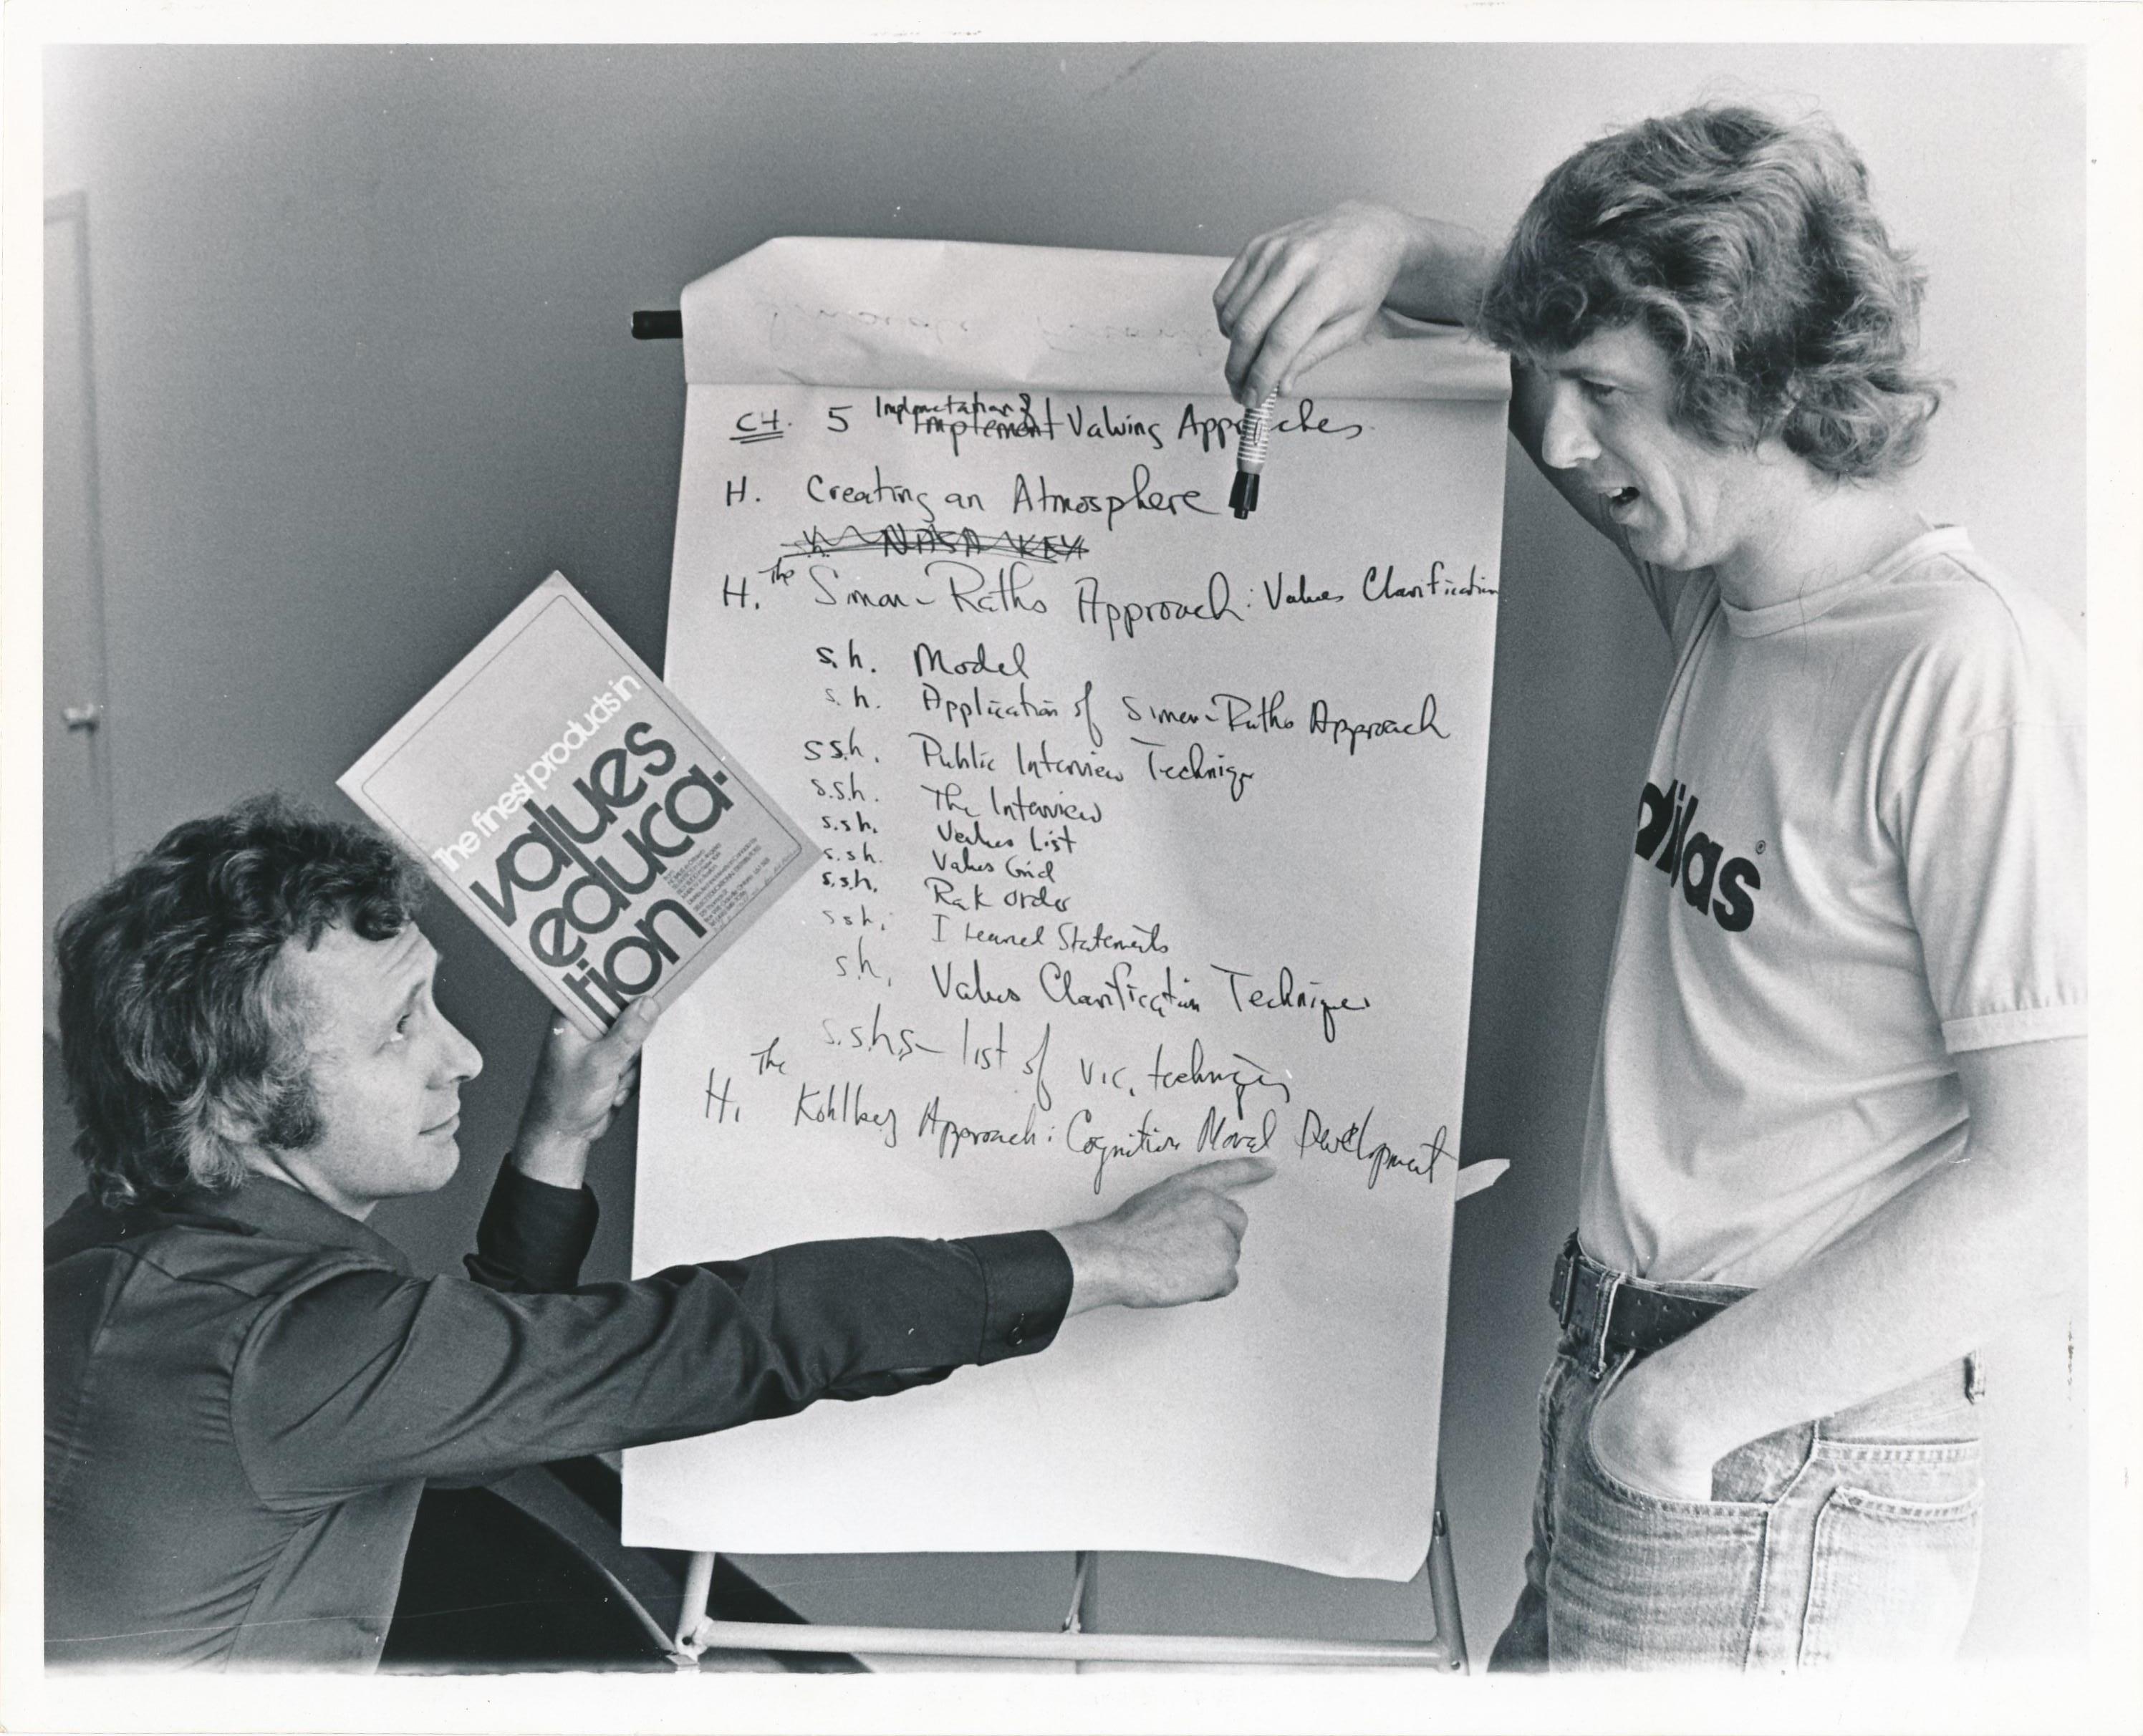 CH. 5 Implementation of Implement Valuing Approaches
H. Creating an Atmosphere
H. NASA KEY
H. The Simon-Raths Approach: Values Clarification
s.h. Model
s.h. Application of Simon-Raths Approach
s.s.h. Public Interview Technique
s.s.h. The Interview
s.s.h. Values List
s.s.h. Values Grid
s.s.h. Rak order
s.s.h. I Learned Statements
s.h. Values Clarification Techniques
s.s.h.s - list of V.C. techniques
H. The Kohlberg Approach: Cognitive Moral Development
The finest products in
values
educa-
tion
didas®